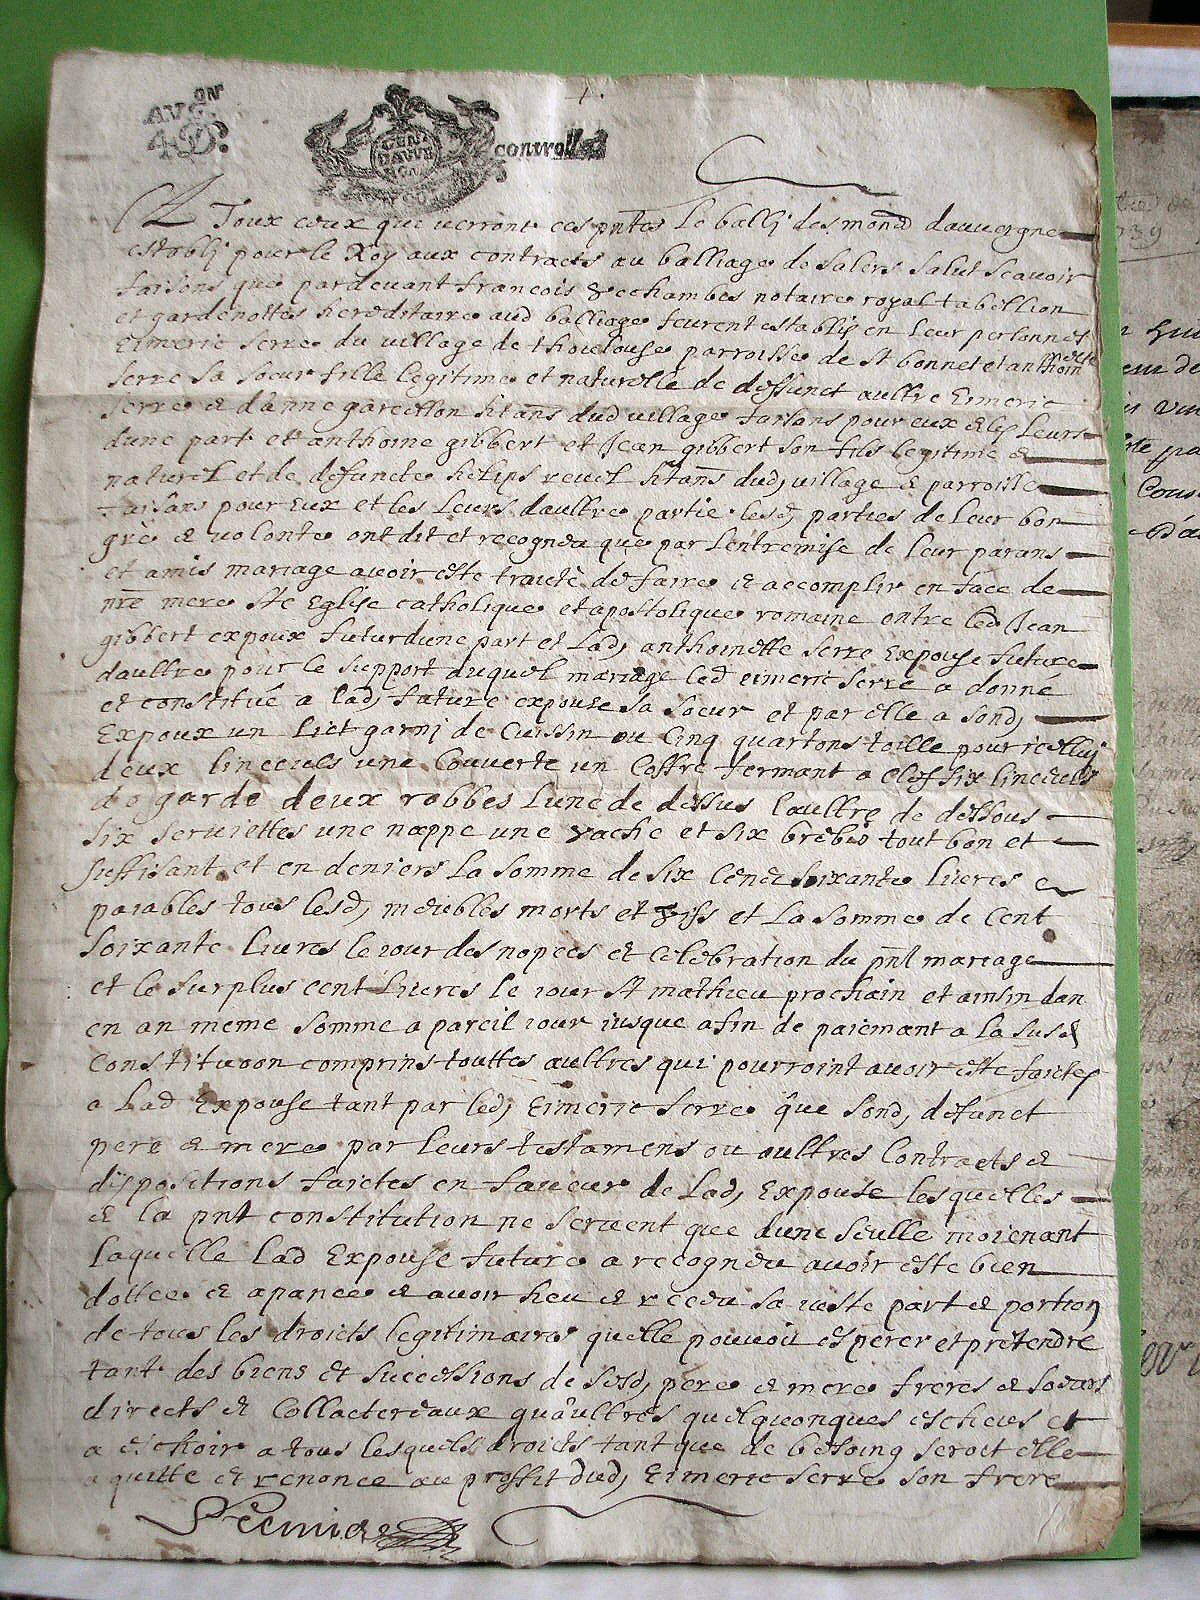 AVGN
4 D.
GEN
DAUVE
controllé
A Toux ceux que verront ces pntes Le balli des mond dauvergne
establi pour le Roy aux contracts au balliage de salers salut scavoir
faisons que pardevant francois notaire royal tabellion
et gardenottes hereditaire aud balliage feurent establis en Leur personnes
Eimeric serre du village de thoulouse parroisse de st bonnet et anthoinette
serre sa soeur fille legitime et naturelle de deffunct aultre Eimeric
serre et danne garcellon hitans dud village faisans pour eux et les Leurs
dune part et anthoine gibbert et Jean gibbert son fils legitime et
naturel et de defuncte helips revel hitans dud, village et parroisse
faisans pour Eux et les Leurs daultre partie lesd, parties de Leur bon
gré et volonte ont dit et recogneu que par Lentremise de leur parans
et amis mariage avoir este traitté de faire et accomplir en face de
nre mere Ste Eglise catholique et apostolique romaine entre led Jean
gibbert expoux futur dune part et Lad, anthoinette serre Expouse future
daultre pour le support duquel mariage led eimeric serre a donné
et constitué a Lad, future expouse sa soeur et par elle a sond,
Expoux un Lict garni de Cuissin ou Cinq quartons toille pour icelluy
deux linceuls une Couverte un Coffre fermant a clef six linceuls
do garde deux robbes Lune de dessus Laultre de dessous
six serviettes une nappe une vache et six brebis tout bon et
suffisant et en deniers La somme de six Cend soixante Livres
paiables tous lesd, meubles morts et vifs et La somme de Cent
soixante Livres le iour des nopces et Celebration du pnt mariage
et le surplus cent Livres le iour St mathieu prochain et ainsin dan
en an meme somme a pareil iour iusque a fin de paiemant a La susd
Constitution comprins touttes aultres qui pourroint avoir este faictes
a Lad Expouse tant par led, Eimeric serre que sond, defunct
pere et mere par Leurs testamens ou aultres Contracts et
dispositions faictes en faveur de Lad, Expouse lesquelles
et la pnt constitution ne servent que dune seulle moienant
Laquelle Lad Expouse future a recogneu avoir este bien
dottee et apanee et avoir heu et receu sa iuste part et portion
de tous les droicts legitimaires quelle pouvoit esperer et pretendre
tant des biens et successions de sesd, pere et mere freres et soeurs
directs et Collactereaux quaultres quelquonques escheus et
a eschoir a tous lesquels droicts tant que de besoing seroit elle
a quitte et renonce au proffit dud, Eimeric serre son frere